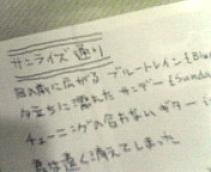 サンライズ通り
目の前に広がる ブルートレイン {Blu
夕立ちに濡れた サンデー {Sunda
チューニングの合わない ギター
君は遠く消えてしまった